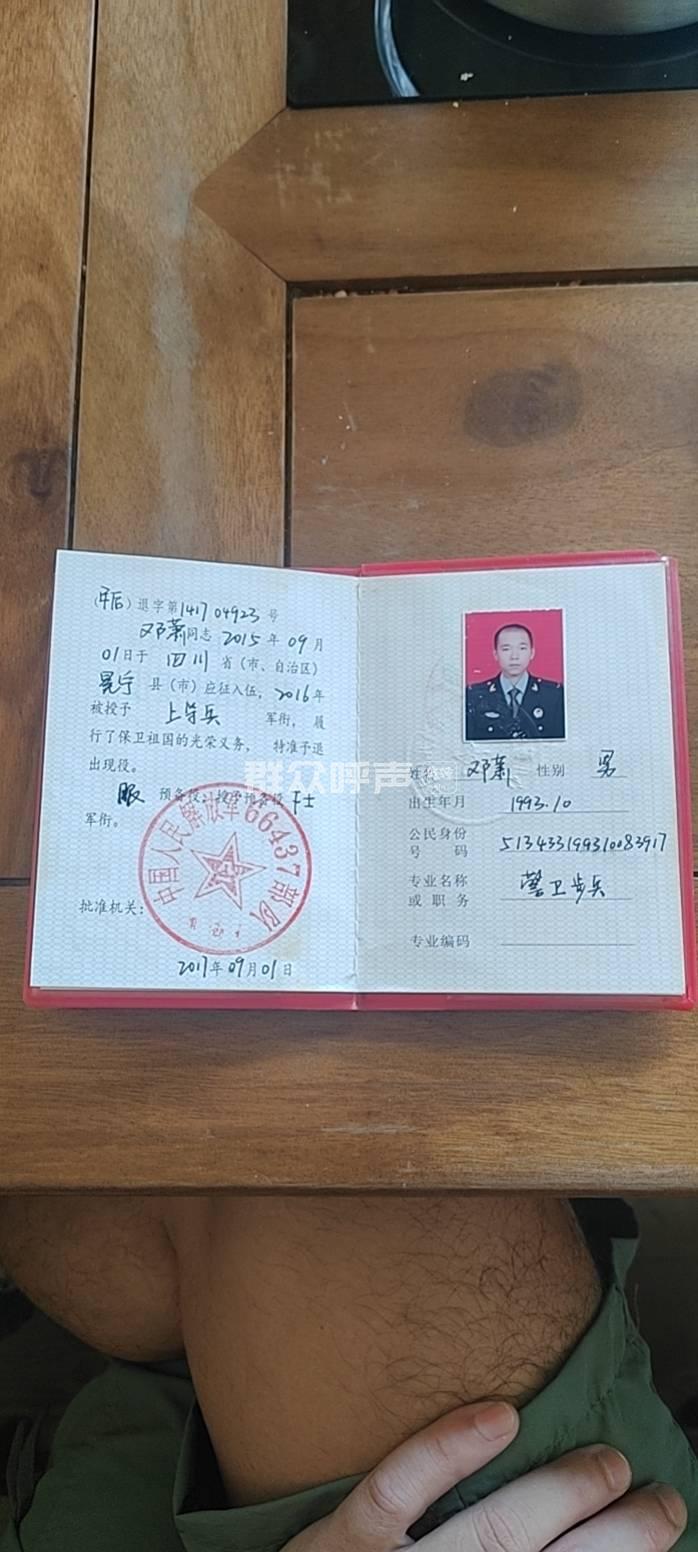 (军后)退字第1417 04923号
邓萧同志 2015年09月
01日于 四川 省(市、自治区)
冕宁 县(市)应征入伍,2016年
被授予 上等兵 军衔,履
行了保卫祖国的光荣义务,特准予退
出现役。
服 预备役,授予预备役 下士
军衔。
中国人民解放军66437部队
批准机关:
2017年09月01日
姓名 邓萧 性别 男
出生年月 1993.10
公民身份
号码 513433199310083917
专业名称
或职务 警卫步兵
专业编码
群众呼声